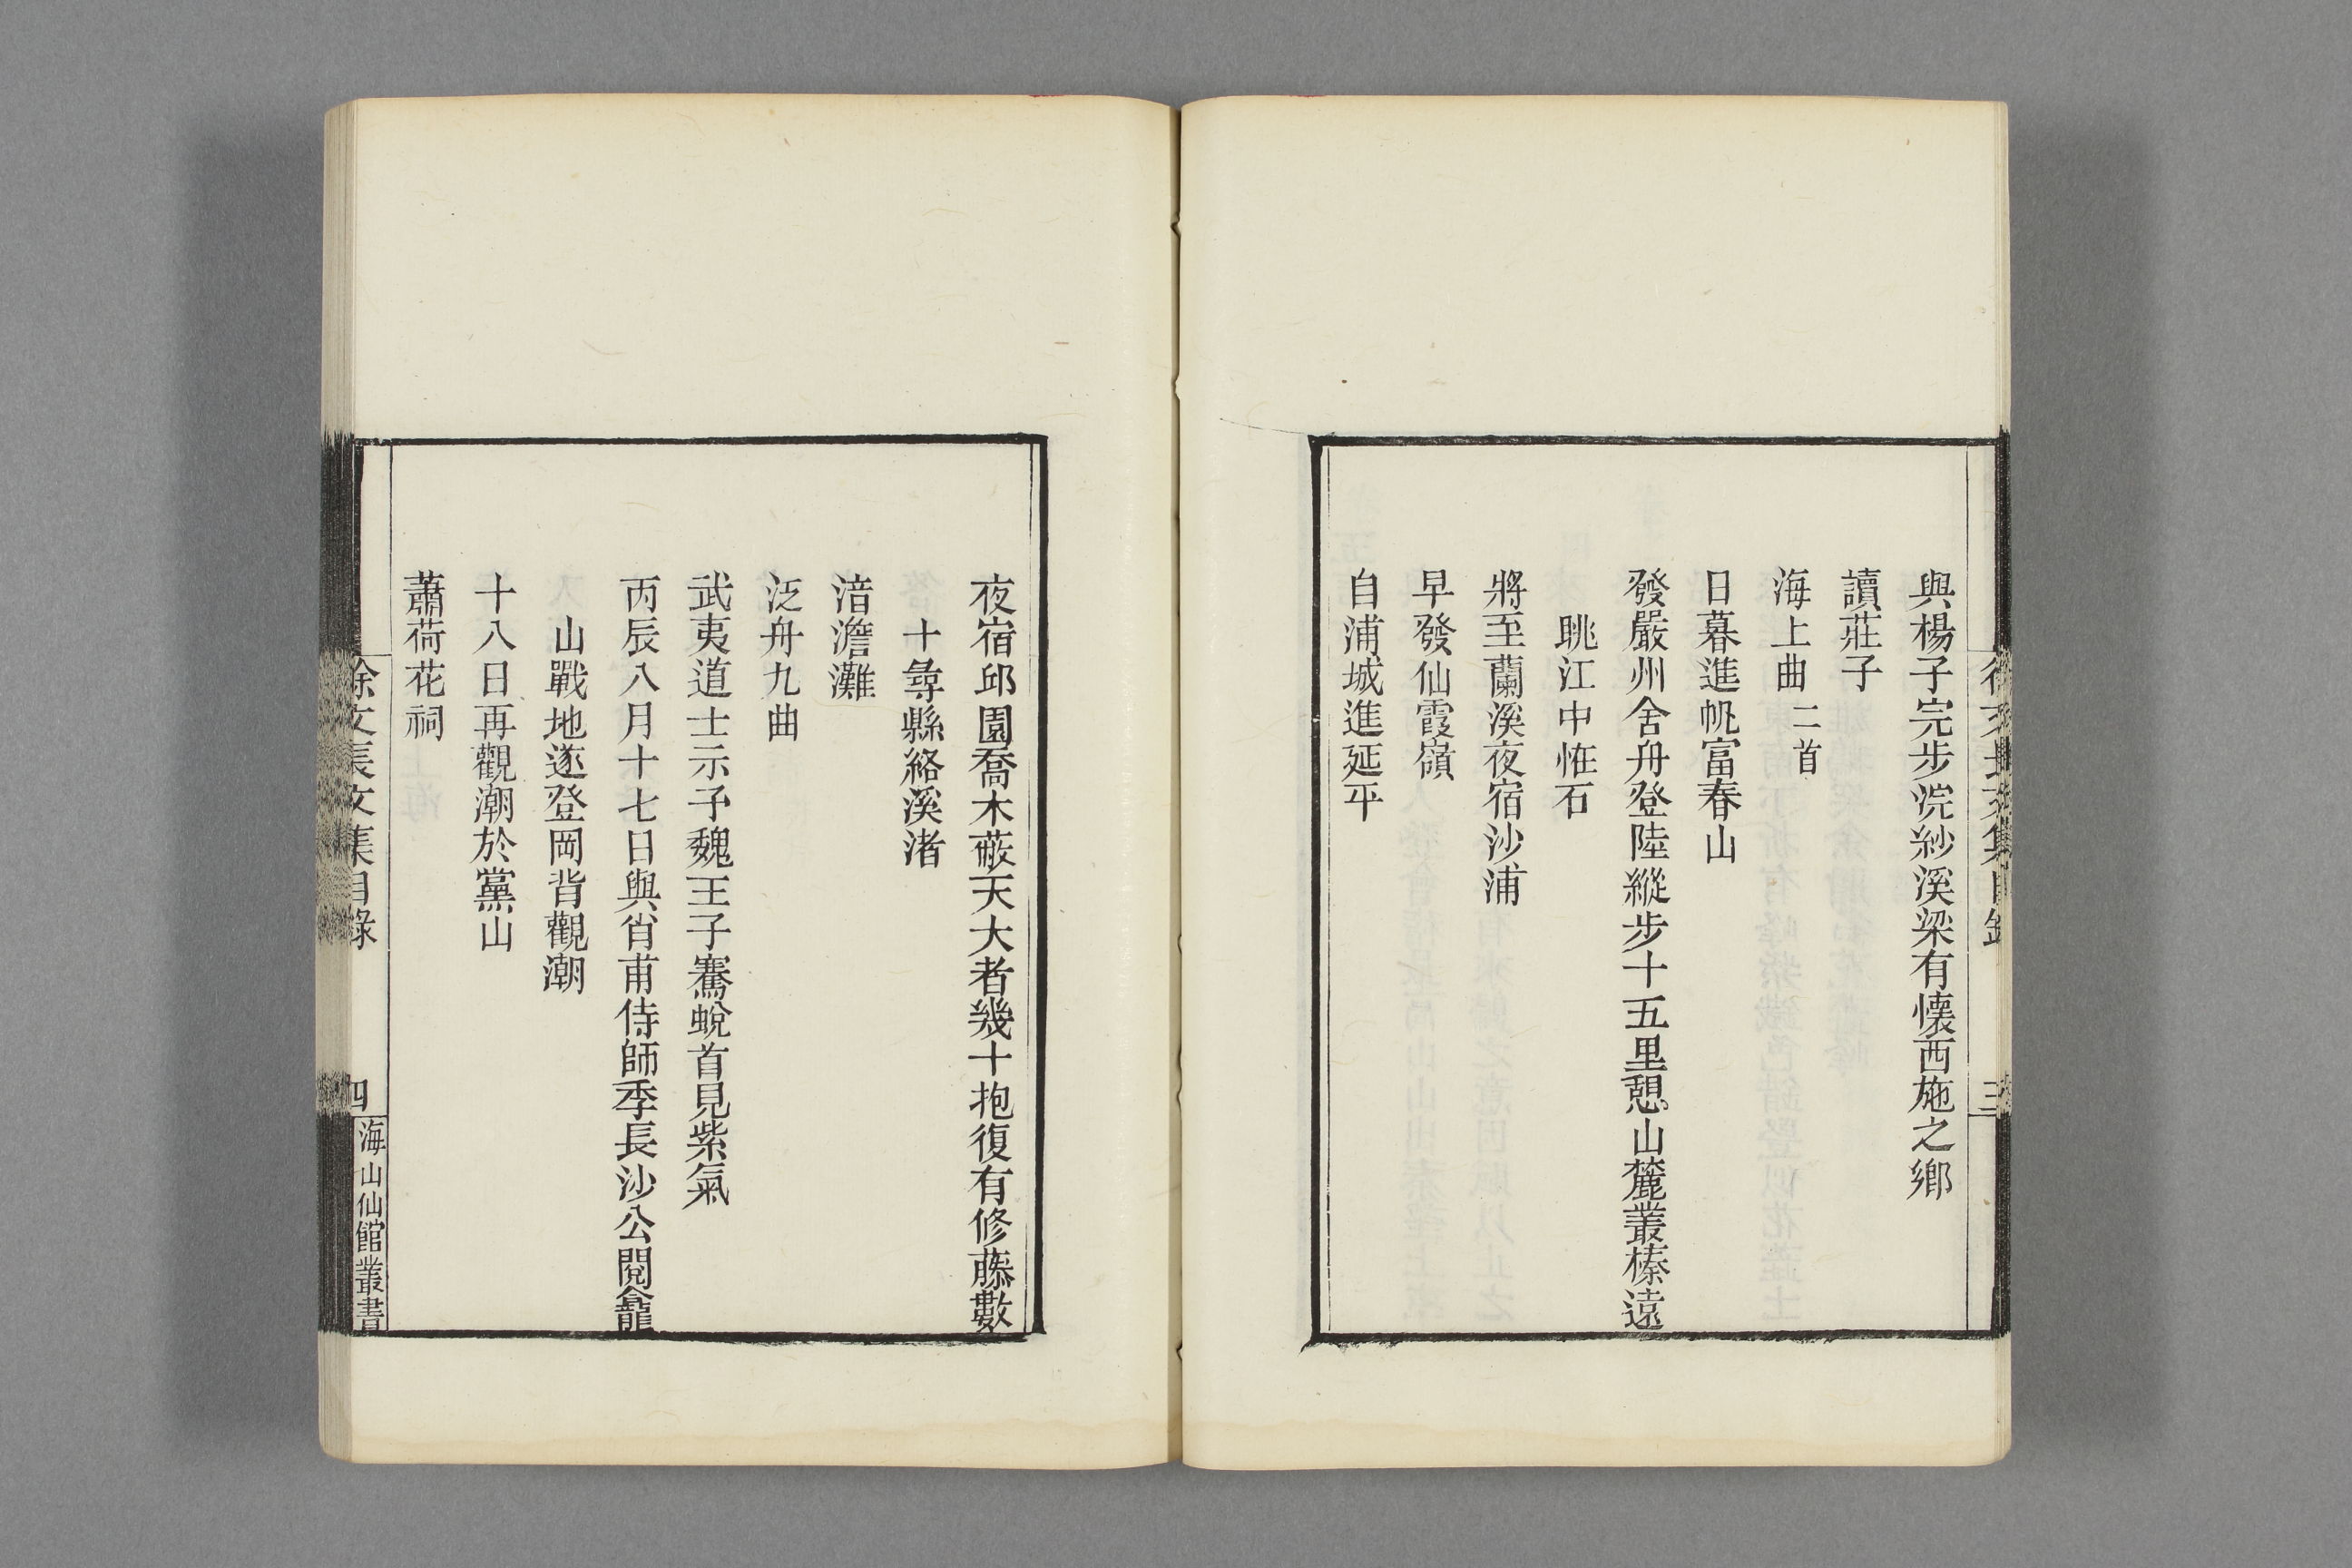 與楊子完步浣紗溪梁有懷西施之鄉
讀莊子
海上曲二首
日暮進帆富春山
發嚴州舍舟登陸縱步十五里憩山麓叢榛遠
眺江中恠石
將至蘭溪夜宿沙浦
早發仙霞嶺
自浦城進延平
三
夜宿邱園喬木蔽天大者幾十抱復有修藤數
十尋縣絡溪渚
湆澹灘
泛舟九曲
武夷道士示予魏王子騫蛻首見紫氣
丙辰八月十七日與肖甫侍師季長沙公閱龕
山戰地遂登岡背觀潮
十八日再觀潮於黨山
蕭荷花祠
徐文長文集目錄
四
海山仙館叢書